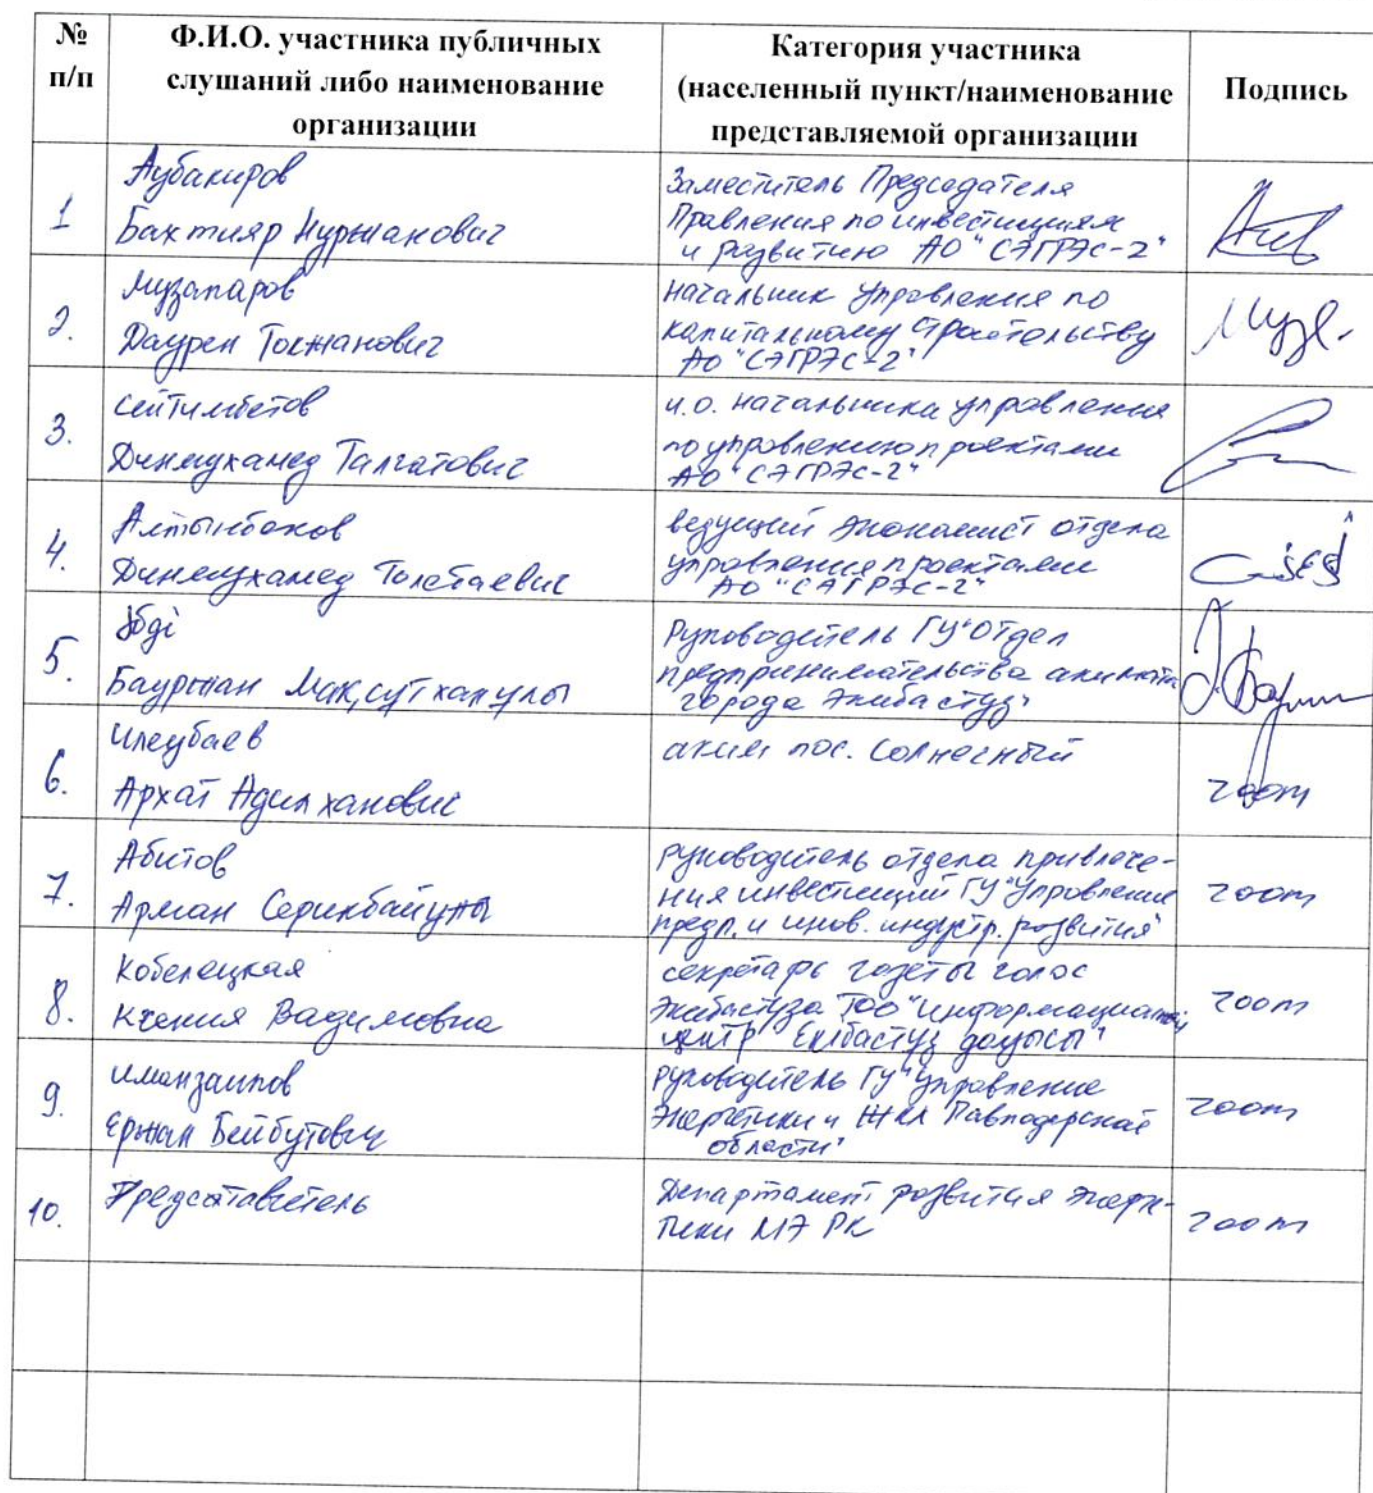 № п/п
Ф.И.О. участника публичных слушаний либо наименование организации
Категория участника (населенный пункт/наименование представляемой организации
Подпись
1
Аубакиров
Бахтияр Нурланович
Заместитель Председателя
Правления по инвестициям
и развитию АО "СЭГРЭС-2"
2.
Музапаров
Даурен Токжанович
начальник управления по
капитальному строительству
АО "СЭГРЭС-2"
3.
Сейтимбетов
Динмухамед Талгатович
и.о. начальника управления
по управлению проектами
АО "СЭГРЭС-2"
4.
Алтынбеков
Динмухамед Толебаевич
ведущий экономист отдела
управления проектами
АО "СЭГРЭС-2"
5.
Әбді
Бауржан Мақсутханулы
Руководитель ГУ "Отдел
предпринимательства акимата
города Экибастуз"
6.
Илеубаев
Архат Адилханович
аким пос. Солнечный
zoom
7.
Абитов
Арман Серикбайулы
руководитель отдела привлече-
ния инвестиций ГУ "Управление
предп. и иннов. индустр. развития"
zoom
8.
Кобелецкая
Ксения Вадимовна
секретарь газеты голос
Экибастуза ТОО "Информационный
центр "Екібастұз дауысы"
zoom
9.
Иманзаипов
Ержан Бейбутович
руководитель ГУ "Управление
Энергетики и ЖКХ Павлодарской
области"
zoom
10.
Представитель
Департамент развития энерге-
тики МЭ РК
zoom